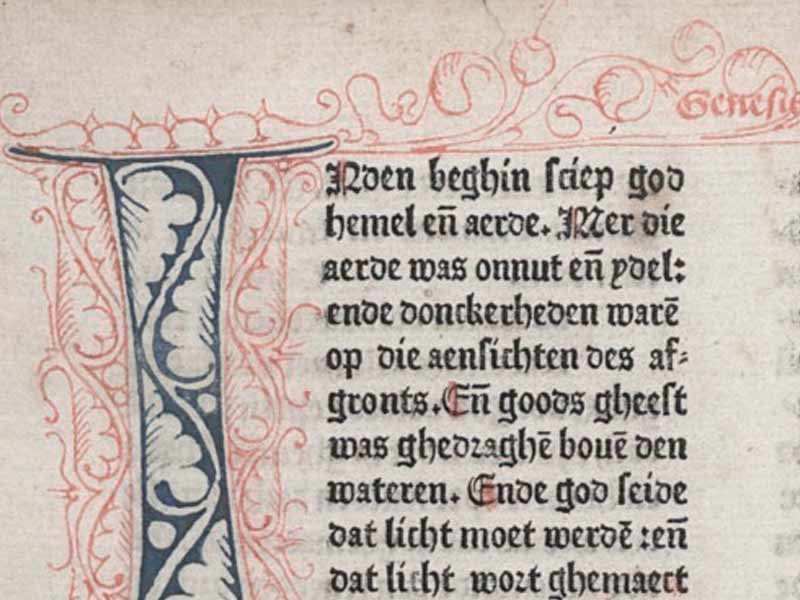 Genesis
INden beghin sciep god
hemel en̄ aerde. Mer die
aerde was onnut en̄ ydel:
ende donckerheden warē
op die aensichten des af⸗
gronts. En̄ goods gheest
was ghedraghē bouē den
wateren. Ende god seide
dat licht moet werdē :en̄
dat licht wort ghemaect